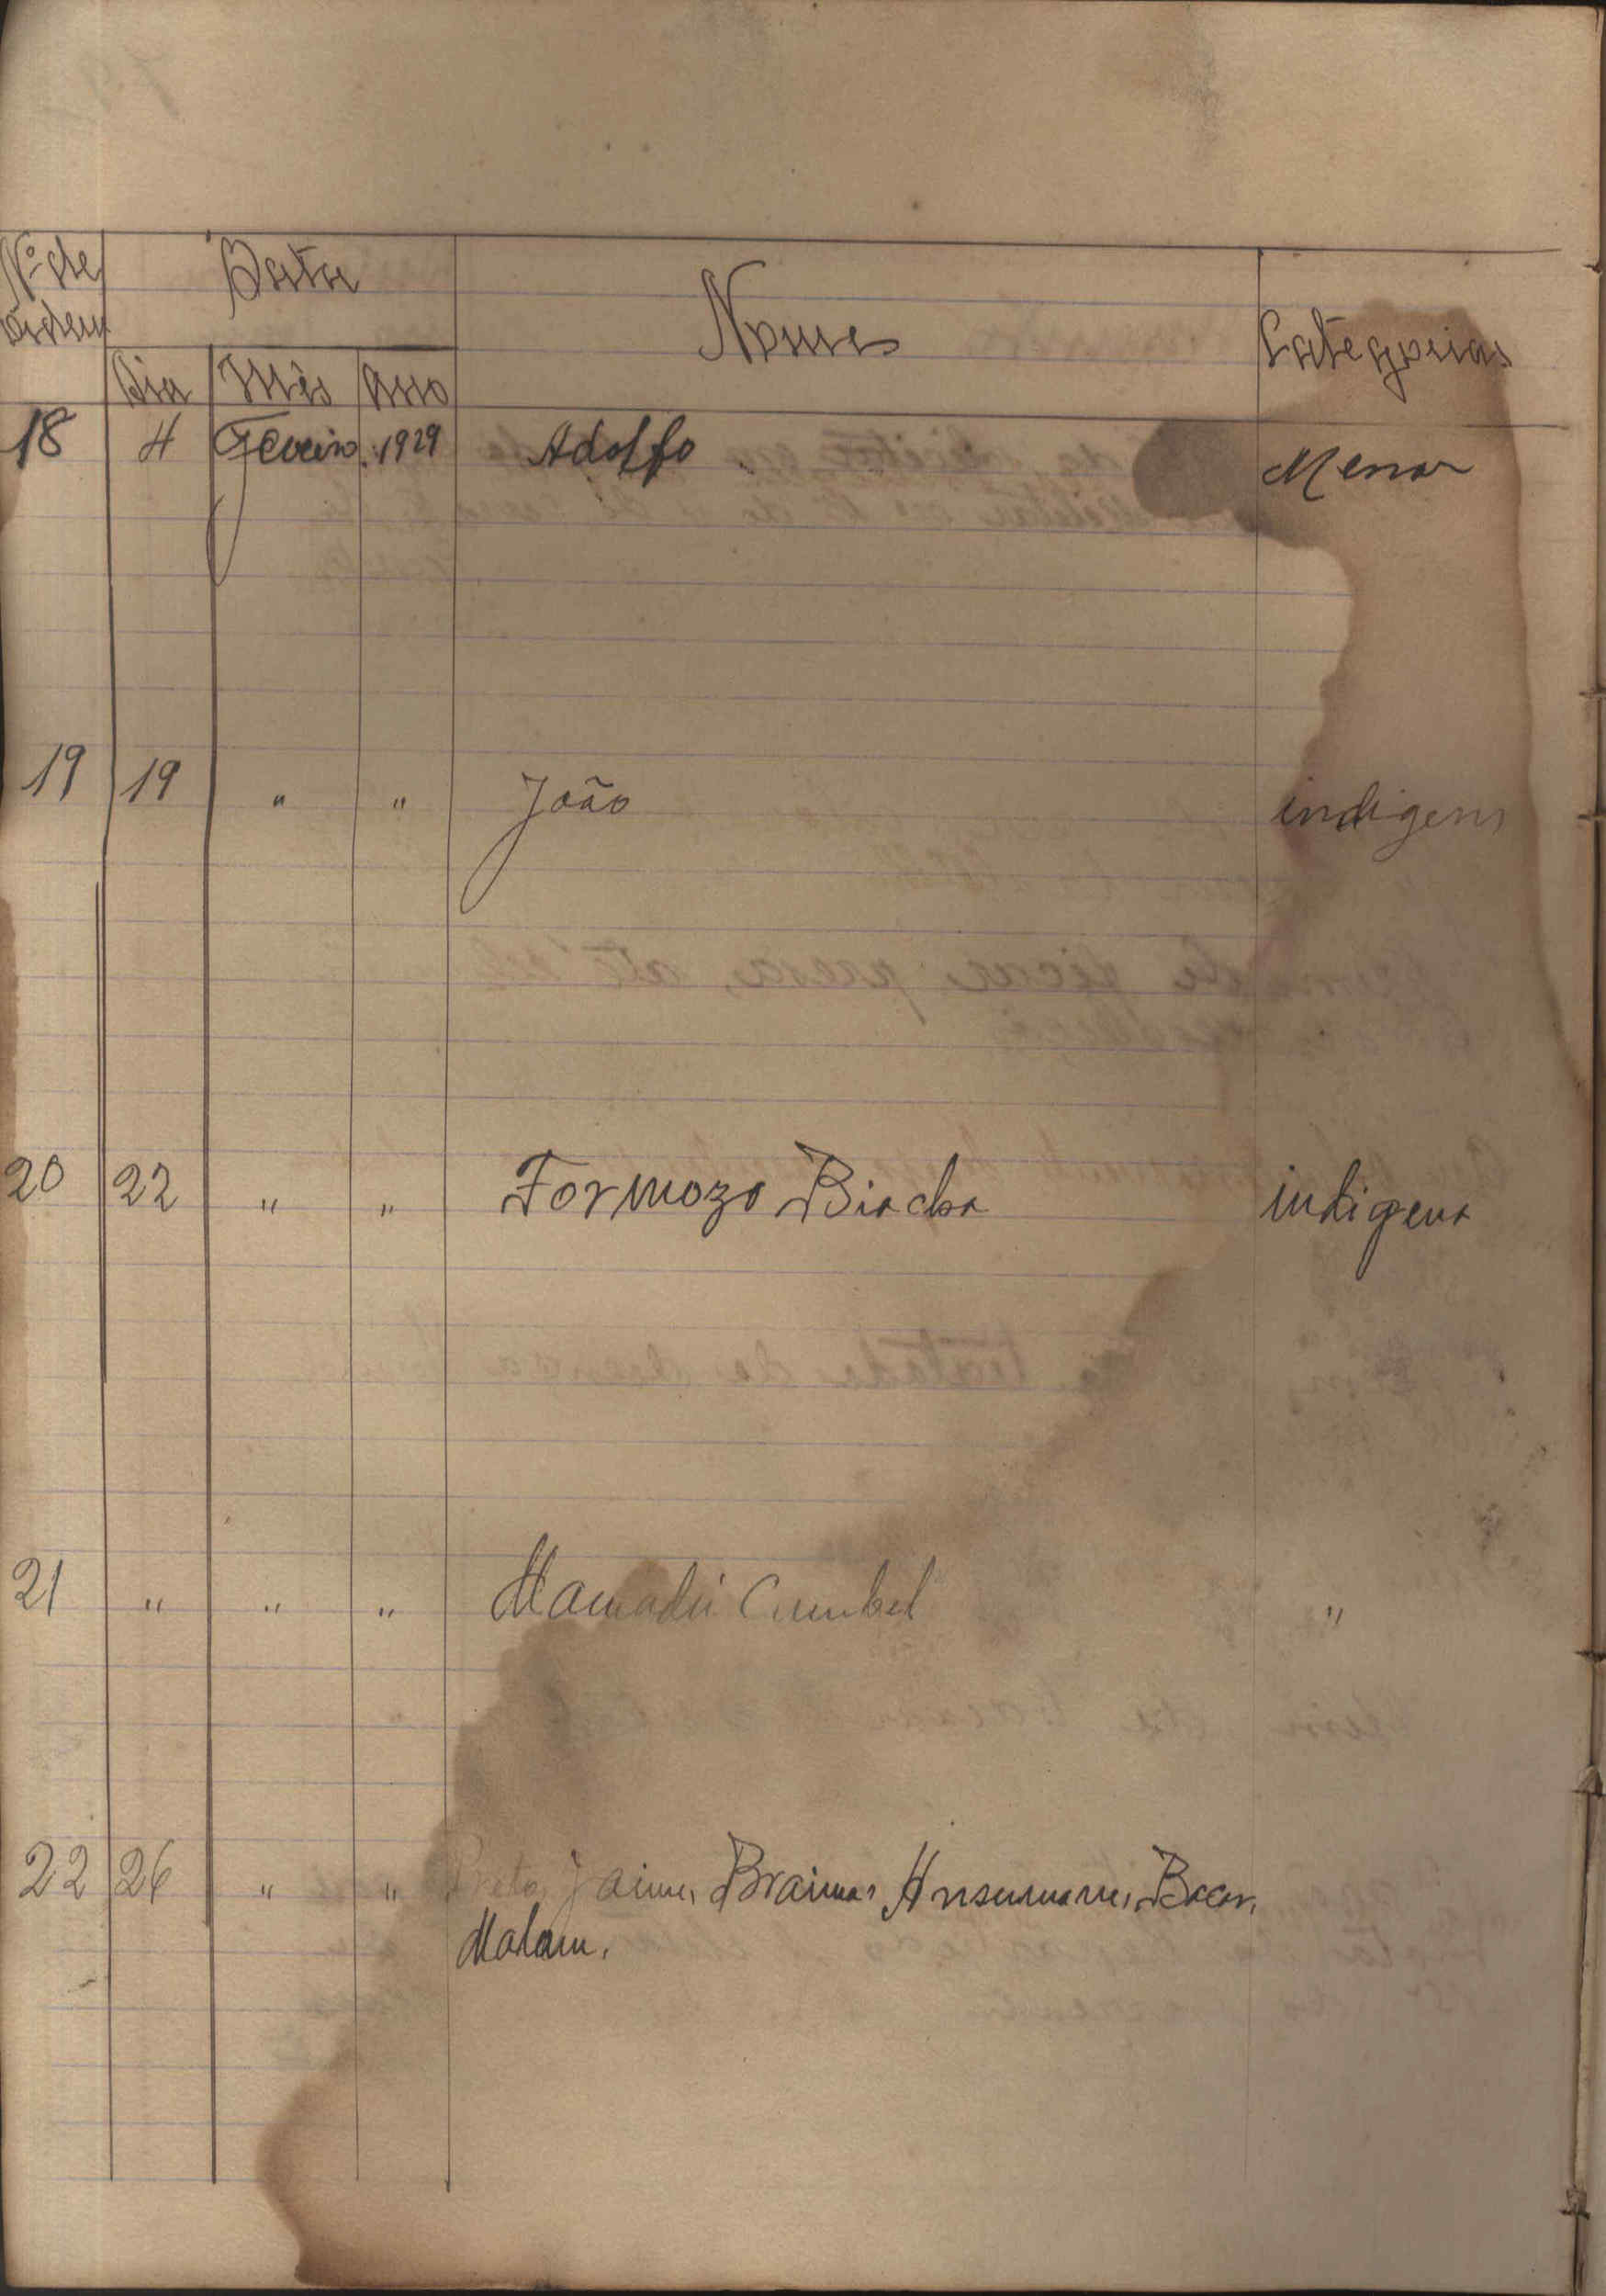 Nº de ordem Data Nomes Categorias
Dia Mês Ano
18 4 Fevereiro 1929 Adolfo Menor
19 19 " " João indigena
20 22 " " Formozo Biacha indigena
21 " " " Mamadú Cumbel "
22 26 " " Preto, Jaime, Braima, Ansumane, Bacar,
Malam.